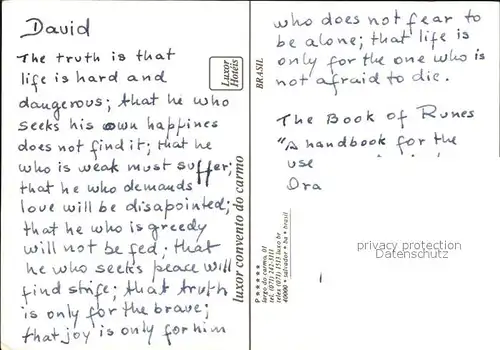 David
The truth is that
life is hard and
dangerous; that he who
seeks his own happines
does not find it; that he
who is weak must suffer;
that he who demands
love will be disapointed;
that he who is greedy
will not be fed; that
he who seeks peace will
find strife; that truth
is only for the brave;
that joy is only for him
who does not fear to
be alone; that life is
only for the one who is
not afraid to die.
The Book of Runes
"A handbook for the
use
Ora
Luxor
Hotéis
BRASIL
luxor convento do carmo
largo do carmo, 01
tel. (071) 242-3111
telex (071) 1513 luxo br
40000 * salvador * ba * brasil
privacy protection
DARABANTH.COM